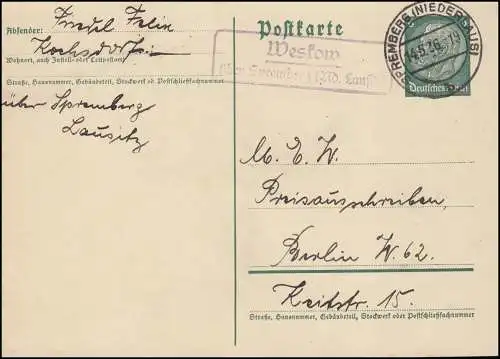 Absender: Friedel Felix
Kochsdorf
Wohnort, auch Zustell- oder Leitpostamt
Straße, Hausnummer, Gebäudeteil, Stockwerk od Postschließfachnummer
über Spremberg
Lausitz
Postkarte
Weskow
über Spremberg (Nd. Laus)
SPREMBERG (NIEDERLAUS)
14.5.36.-19
Deutsches Reich
M. E. W.
Preisausschreiben,
Berlin W. 62.
Keitstr. 15.
Straße, Hausnummer, Gebäudeteil, Stockwerk oder Postschließfachnummer